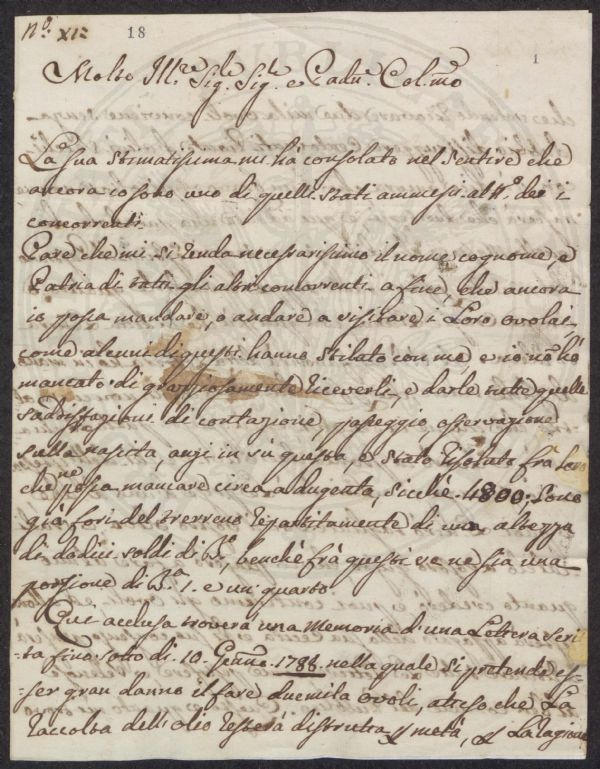 N.º XI=
18
1
Molto Ill.re Sig.re Sig.re e Padn.e Col.mo
La Sua stimatissima mi ha consolato nel sentire che
ancora io sono uno di quelli stati ammessi al N.º dei
concorrenti.
Pare che mi si renda necessarissimo il nome, cognome, e
Patria di tutti gli altri concorrenti a fine, che ancora
io possa mandare, o andare a visitare i Loro ovolai
come alcuni di questi hanno stilato con me e io nò hò
mancato di graziosamente riceverli, e darle tutte quelle
sadisfazioni di contazione, passeggio osservazione
sulla nascita, anzi in sù questa, è stato risoluto frà loro
che ne possa mancare circa a dugento, sicchè 4800. sono
già fori del terreno repartitamente di una altezza
di dodici soldi di B.º, benchè frà questi ve ne sia una
porzione di B.a 1. e un quarto.
Quì acclusa troverà una Memoria di una Lettera scri=
=ta fino sotto dì 10. Genn.o 1786. nella quale si pretende es=
=ser gran danno il fare duemila ovoli, atteso che La
raccolta dell'olio resterà distrutta p metà, p La ragione